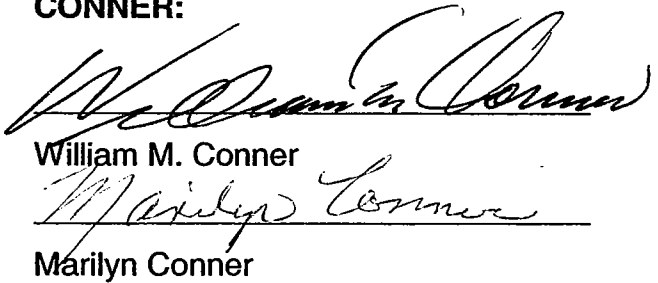 CONNER:
William M Conner
William M. Conner
Marilyn Conner
Marilyn Conner